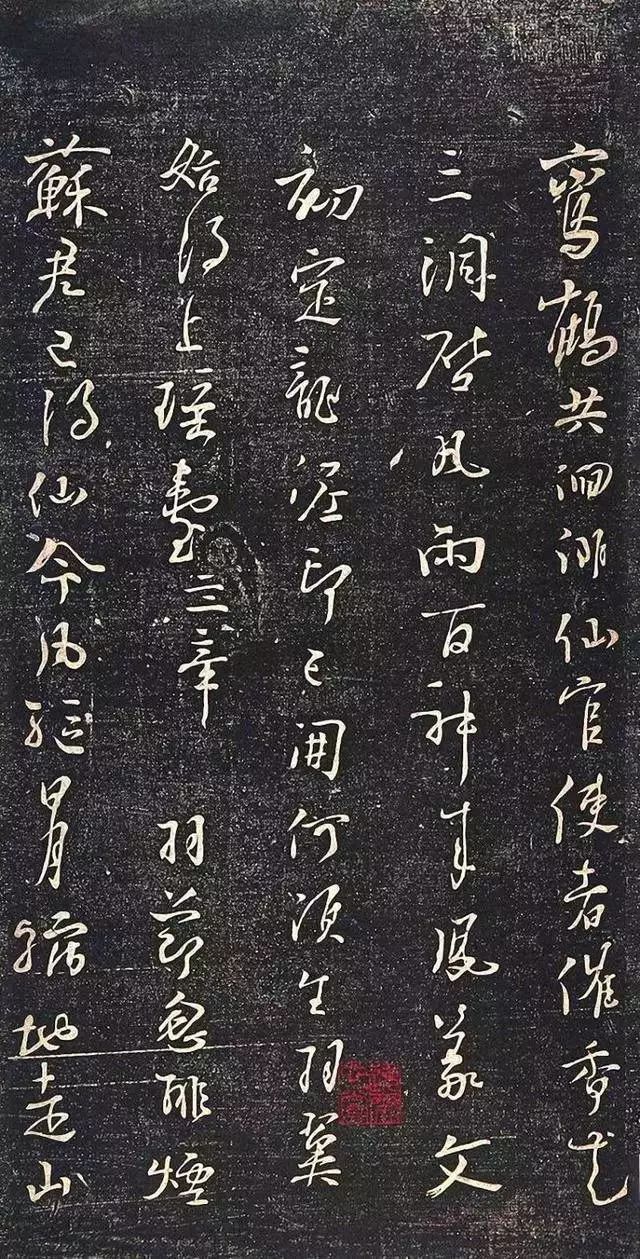 鸞鶴共徊徘仙官使者催香花
三洞啓風雨百神來鳳篆文
初定龍泥印已開何須生羽翼
始得上瑤臺三章 羽節忽排煙
蘇君已得仙命風驅日月縮地走山